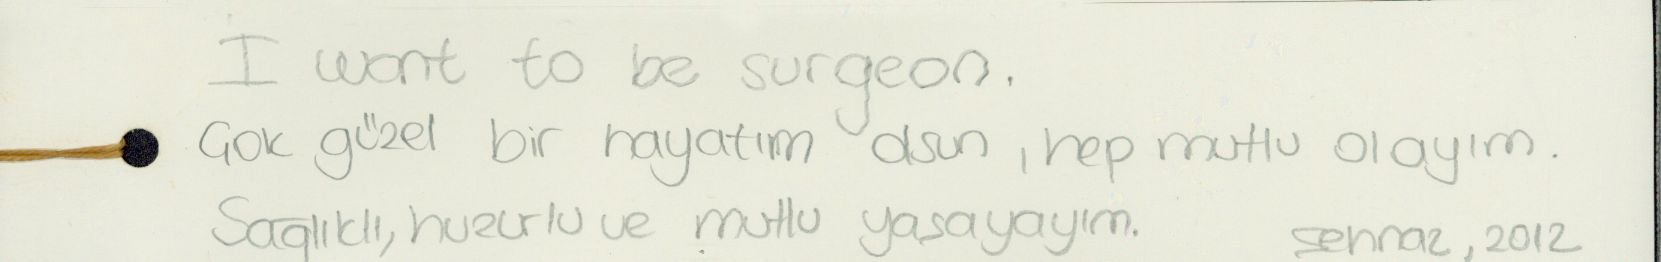 I want to be surgeon.
Çok güzel bir hayatım olsun, hep mutlu olayım.
Sağlıklı, huzurlu ve mutlu yaşayayım. Şehnaz, 2012